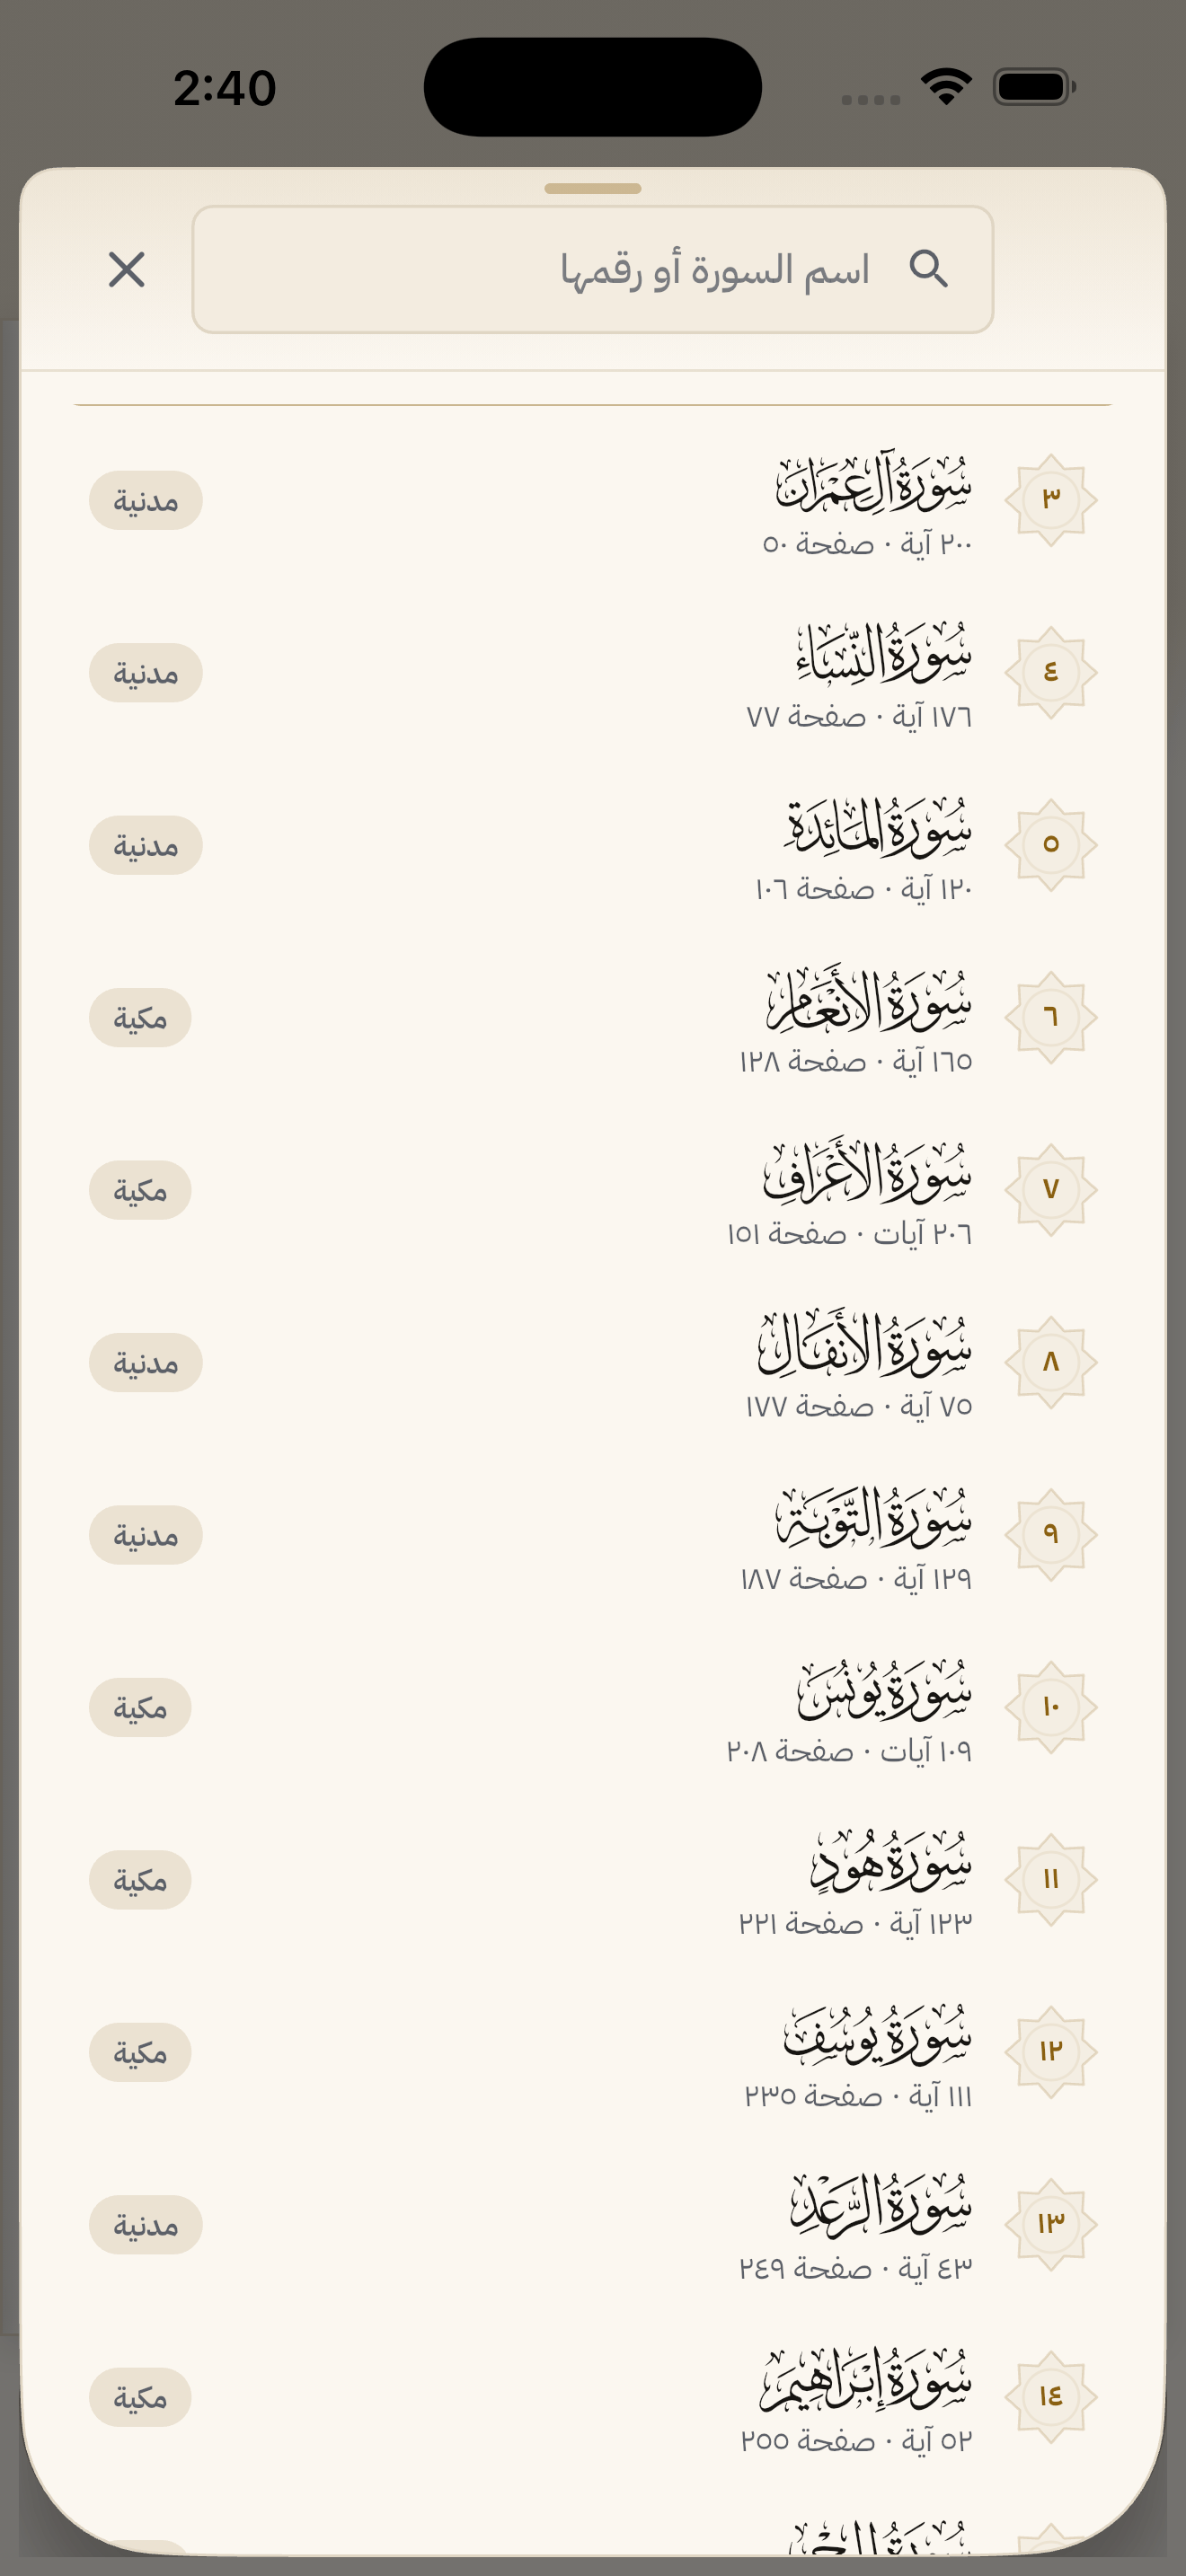 2:40
اسم السورة أو رقمها
٣
سُورَةُ آلِ عِمْرَانَ
٢٠٠ آية · صفحة ٥٠
مدنية
٤
سُورَةُ النِّسَاءِ
١٧٦ آية · صفحة ٧٧
مدنية
٥
سُورَةُ المَائِدَةِ
١٢٠ آية · صفحة ١٠٦
مدنية
٦
سُورَةُ الأَنْعَامِ
١٦٥ آية · صفحة ١٢٨
مكية
٧
سُورَةُ الأَعْرَافِ
٢٠٦ آيات · صفحة ١٥١
مكية
٨
سُورَةُ الأَنفَالِ
٧٥ آية · صفحة ١٧٧
مدنية
٩
سُورَةُ التَّوْبَةِ
١٢٩ آية · صفحة ١٨٧
مدنية
١٠
سُورَةُ يُونُسَ
١٠٩ آيات · صفحة ٢٠٨
مكية
١١
سُورَةُ هُودٍ
١٢٣ آية · صفحة ٢٢١
مكية
١٢
سُورَةُ يُوسُفَ
١١١ آية · صفحة ٢٣٥
مكية
١٣
سُورَةُ الرَّعْدِ
٤٣ آية · صفحة ٢٤٩
مدنية
١٤
سُورَةُ إِبْرَاهِيمَ
٥٢ آية · صفحة ٢٥٥
مكية